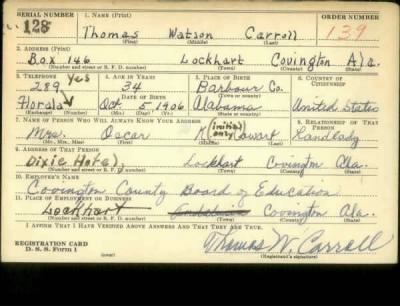 SERIAL NUMBER 1. NAME (Print) ORDER NUMBER
128 Thomas Watson Carroll 139
(First) (Middle) (Last)
2. ADDRESS (Print)
Box 146 Lockhart Covington Ala.
(Number and street or R. F. D. number) (Town) (County) (State)
3. TELEPHONE 4. AGE IN YEARS 5. PLACE OF BIRTH 6. COUNTRY OF CITIZENSHIP
yes
289 34 Barbour Co.
DATE OF BIRTH (Town or county)
Florala Oct 5 1906 Alabama United States
(Exchange) (Number) (Mo.) (Day) (Yr.) (State or country)
7. NAME OF PERSON WHO WILL ALWAYS KNOW YOUR ADDRESS 8. RELATIONSHIP OF THAT PERSON
Mrs. Oscar K (initial only) Cowart Landlady
(Mr., Mrs., Miss) (First) (Middle) (Last)
9. ADDRESS OF THAT PERSON
Dixie Hotel, Lockhart Covington Ala.
(Number and street or R. F. D. number) (Town) (County) (State)
10. EMPLOYER'S NAME
Covington County Board of Education
11. PLACE OF EMPLOYMENT OR BUSINESS
Lockhart Covington Ala.
(Number and street or R. F. D. number) (Town) (County) (State)
I AFFIRM THAT I HAVE VERIFIED ABOVE ANSWERS AND THAT THEY ARE TRUE.
REGISTRATION CARD
D. S. S. Form 1 (over) Thomas W. Carroll
(Registrant's signature)